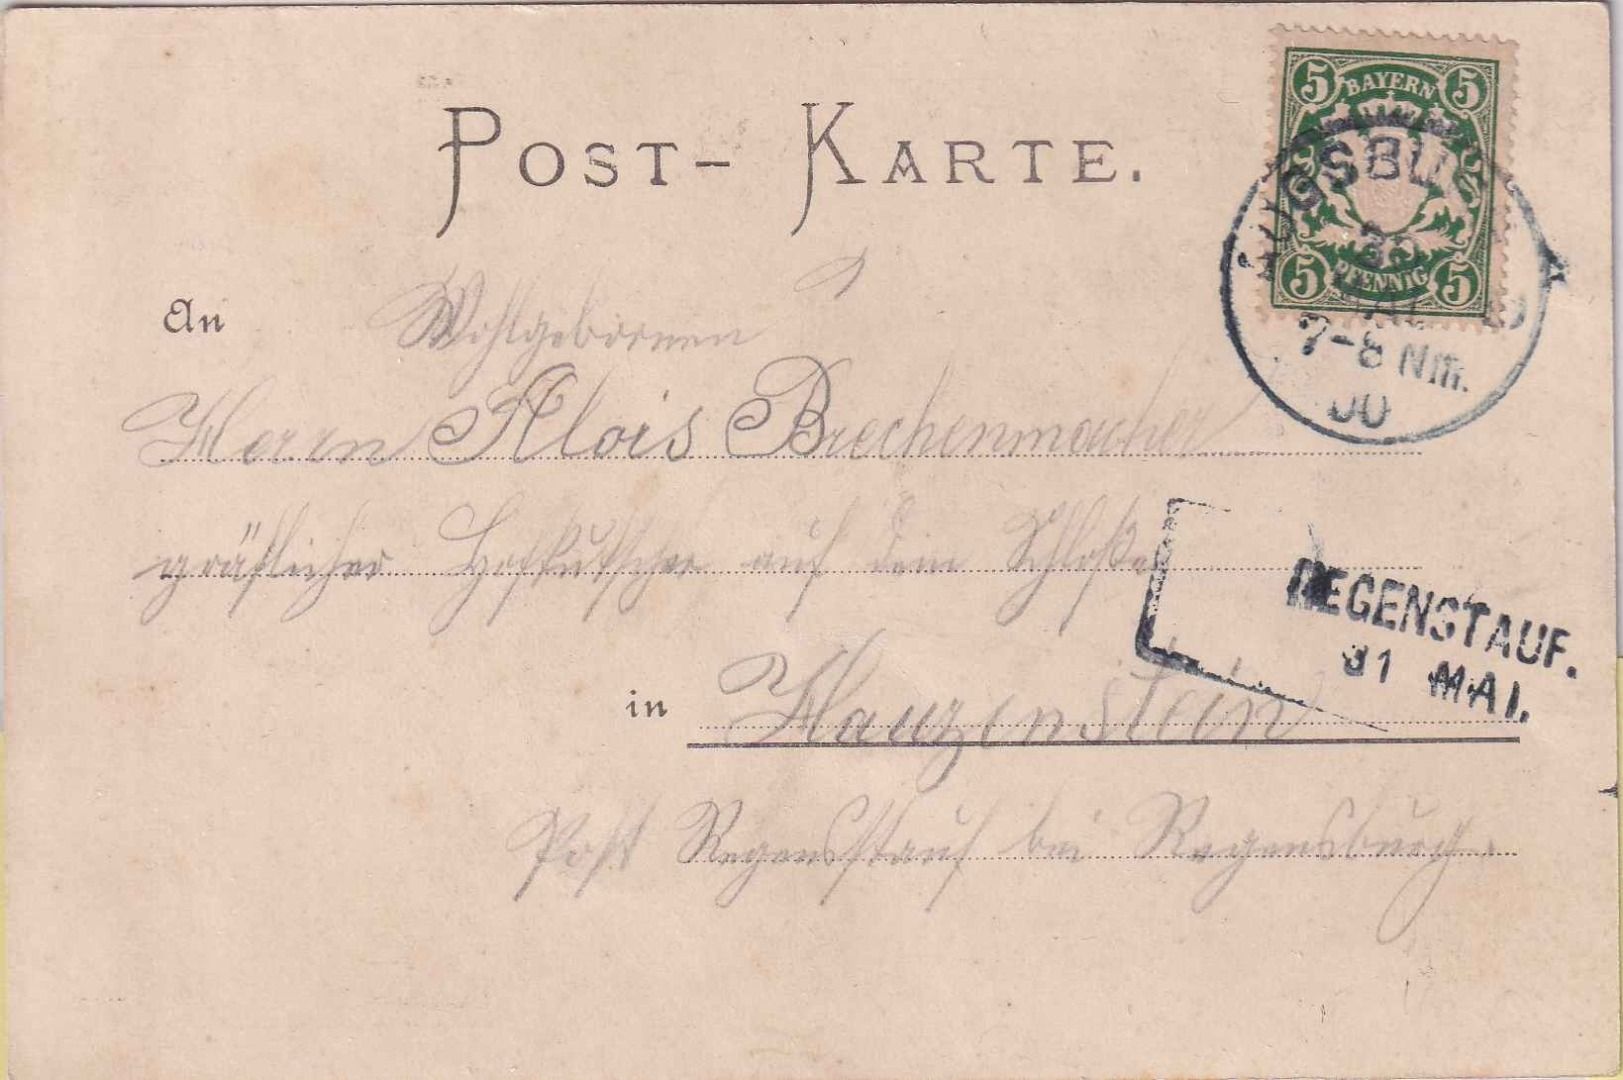 POST-KARTE.
5 BAYERN 5
5 PFENNIG 5
AUGSBU
30
MAI
7-8 Nm.
00
An Wohlgebornen
Herrn Alois Brechenmacher
gräflicher Hofkutscher auf dem Schloße
REGENSTAUF.
31 MAI.
in Hauzenstein
Post Regensstauf bei Regensburg.